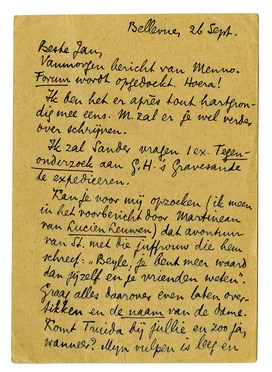 Bellevue, 26 Sept.
Beste Jan,
Vanmorgen bericht van Menno.
Forum wordt opgedoekt. Hoera!
Ik ben het er après tout hartgron-
dig mee eens. M. zal er je wel verder
over schrijven.
Ik zal Sander vragen 1 ex. Tegen-
onderzoek aan G.H. 's Gravesande
te expediceren.
Kan je voor mij opzoeken (ik meen
in het voorbericht door Martineau
van Lucien Leuwen) dat avontuur
van St. met die juffrouw die hem
schreef: „Beyle, je bent meer waard
dan gijzelf en je vrienden weten".
Graag alles daarover even laten over-
tikken en de naam van de dame.
Komt Truida bij jullie en zoo ja,
wanneer? Mijn vulpen is leeg en